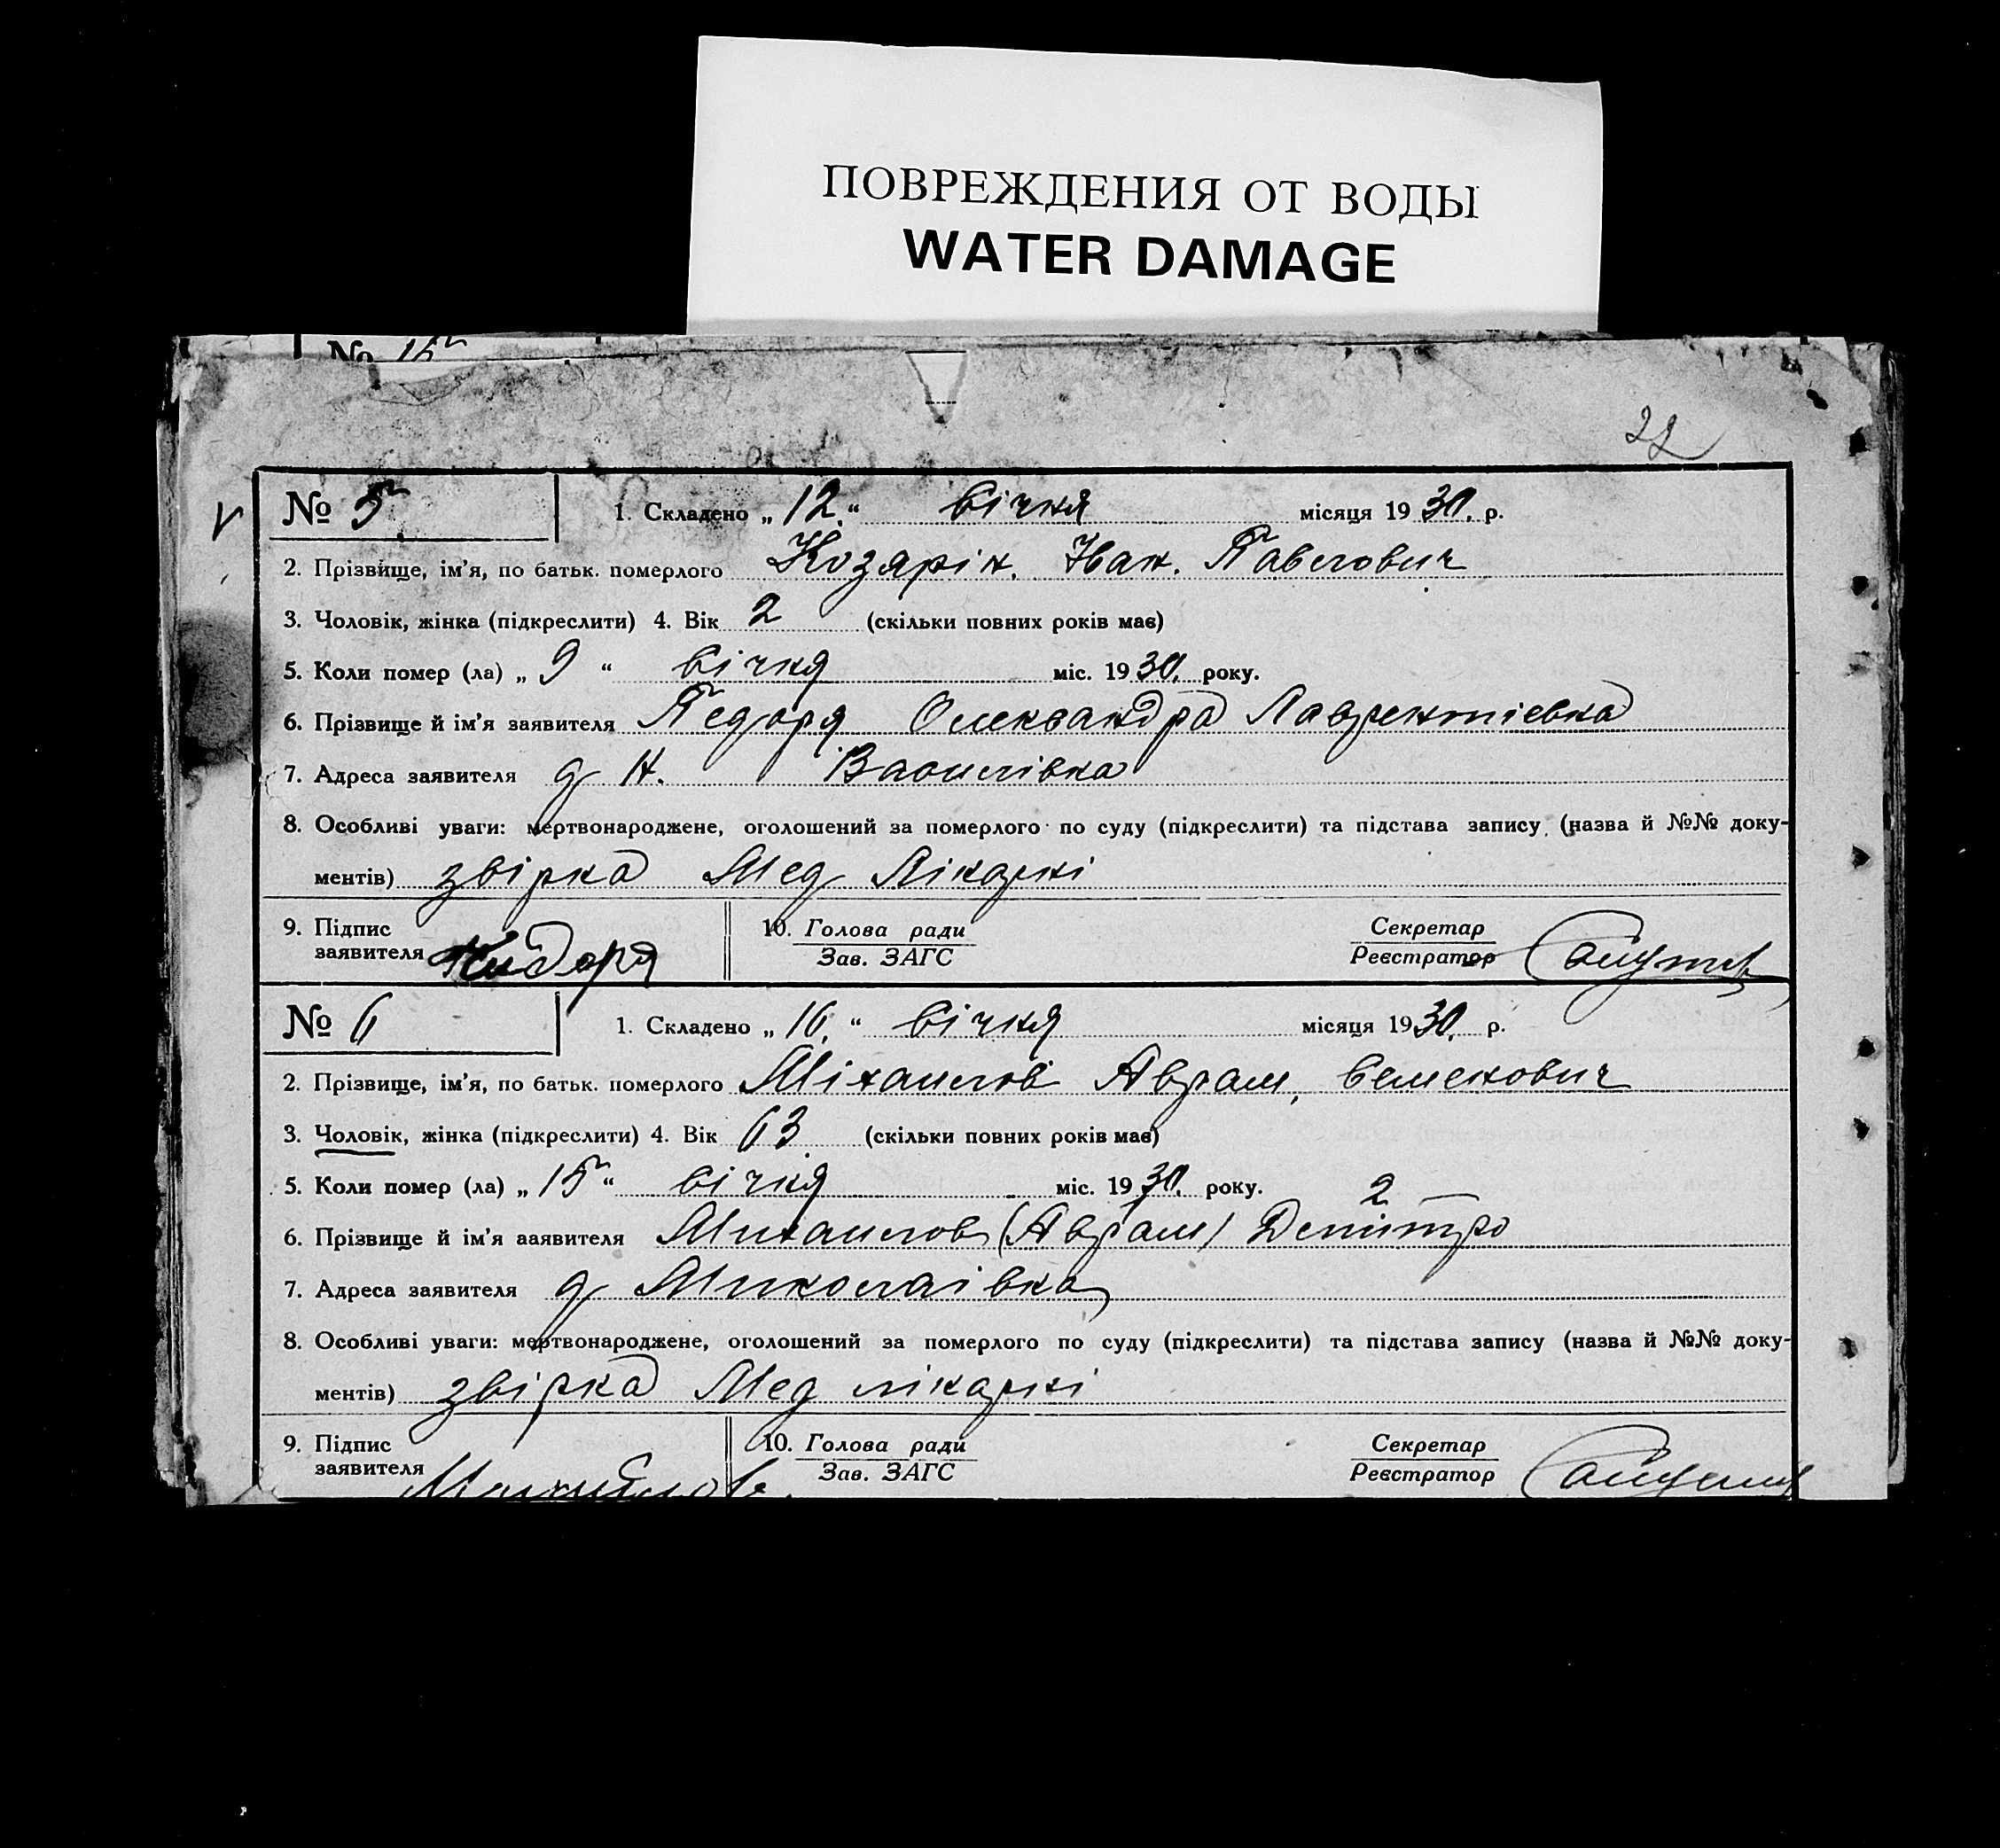 ПОВРЕЖДЕНИЯ ОТ ВОДЫ
WATER DAMAGE
№ 15
22
№ 5
1. Складено „ 12. “ січня місяця 1930. р.
2. Прізвище, ім'я, по батьк. померлого Козярін. Іван. Павлович
3. Чоловік, жінка (підкреслити) 4. Вік 2 (скільки повних років має)
5. Коли помер (ла) „ 9 “ січня міс. 1930. року.
6. Прізвище й ім'я заявителя Педоря Олександра Лаврентієвна
7. Адреса заявителя д Н. Василівка
8. Особливі уваги: мертвонароджене, оголошений за померлого по суду (підкреслити) та підстава запису (назва й №№ доку-
ментів) звірка Мед Лікарні
9. Підпис заявителя
10. Голова ради
Зав. ЗАГС
Секретар
Реєстратор
№ 6
1. Складено „ 16. “ січня місяця 1930. р.
2. Прізвище, ім'я, по батьк. померлого Міхаилов Аврам, Семенович
3. Чоловік, жінка (підкреслити) 4. Вік 63 (скільки повних років має)
5. Коли помер (ла) „ 15 “ січня міс. 1930. року.
2
6. Прізвище й ім'я заявителя Михаилов (Аврам) Дмитро
7. Адреса заявителя д Миколаівка
8. Особливі уваги: мертвонароджене, оголошений за померлого по суду (підкреслити) та підстава запису (назва й №№ доку-
ментів) звірка Мед лікарні
9. Підпис заявителя
10. Голова ради
Зав. ЗАГС
Секретар
Реєстратор